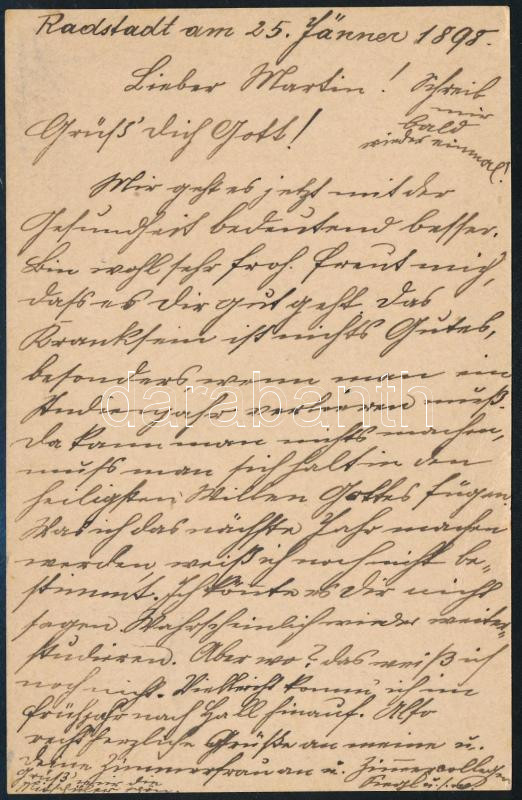 Radstadt am 25. Jänner 1898.
Lieber Martin! Schreib
mir
bald
wieder einmal!
Grüß' Dich Gott!
Mir geht es jetzt mit der
Gesundheit bedeutend besser.
Bin wohl sehr froh. Freut mich,
dass es Dir gut geht. Das
Kranksein ist nichts Gutes,
besonders wenn man ein
Studienjahr verlieren muß.
Da kann man nichts machen,
muß man sich halt in den
heiligsten Willen Gottes fügen.
Was ich das nächste Jahr machen
werden, weiß ich noch nicht be=
stimmt. Ich könnte es Dir nicht
sagen. Wahrscheinlich wieder weiter=
studieren. Aber wo? das weiß ich
noch nicht. Vielleicht komm' ich im
Frühjahr nach Hall hinauf. Also
recht herzliche Grüße an meine u.
deine Zimmerfrau an u. Zimmercollegen
Grüß' mir die
darabanth